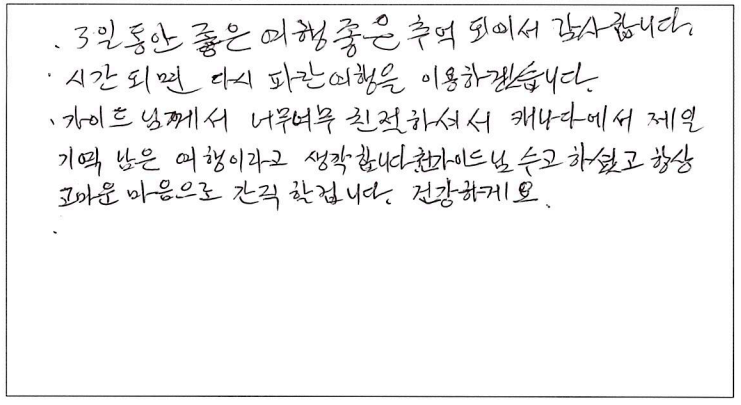 . 3일 동안 좋은 여행 좋은 추억 되어서 감사합니다.
. 시간 되면 다시 파란여행을 이용하겠습니다.
. 가이드님께서 너무너무 친절하셔서 캐나다에서 제일
기억 남은 여행이라고 생각합니다 가이드님 수고 하셨고 항상
고마운 마음으로 간직 할겁니다. 건강하게요.
.